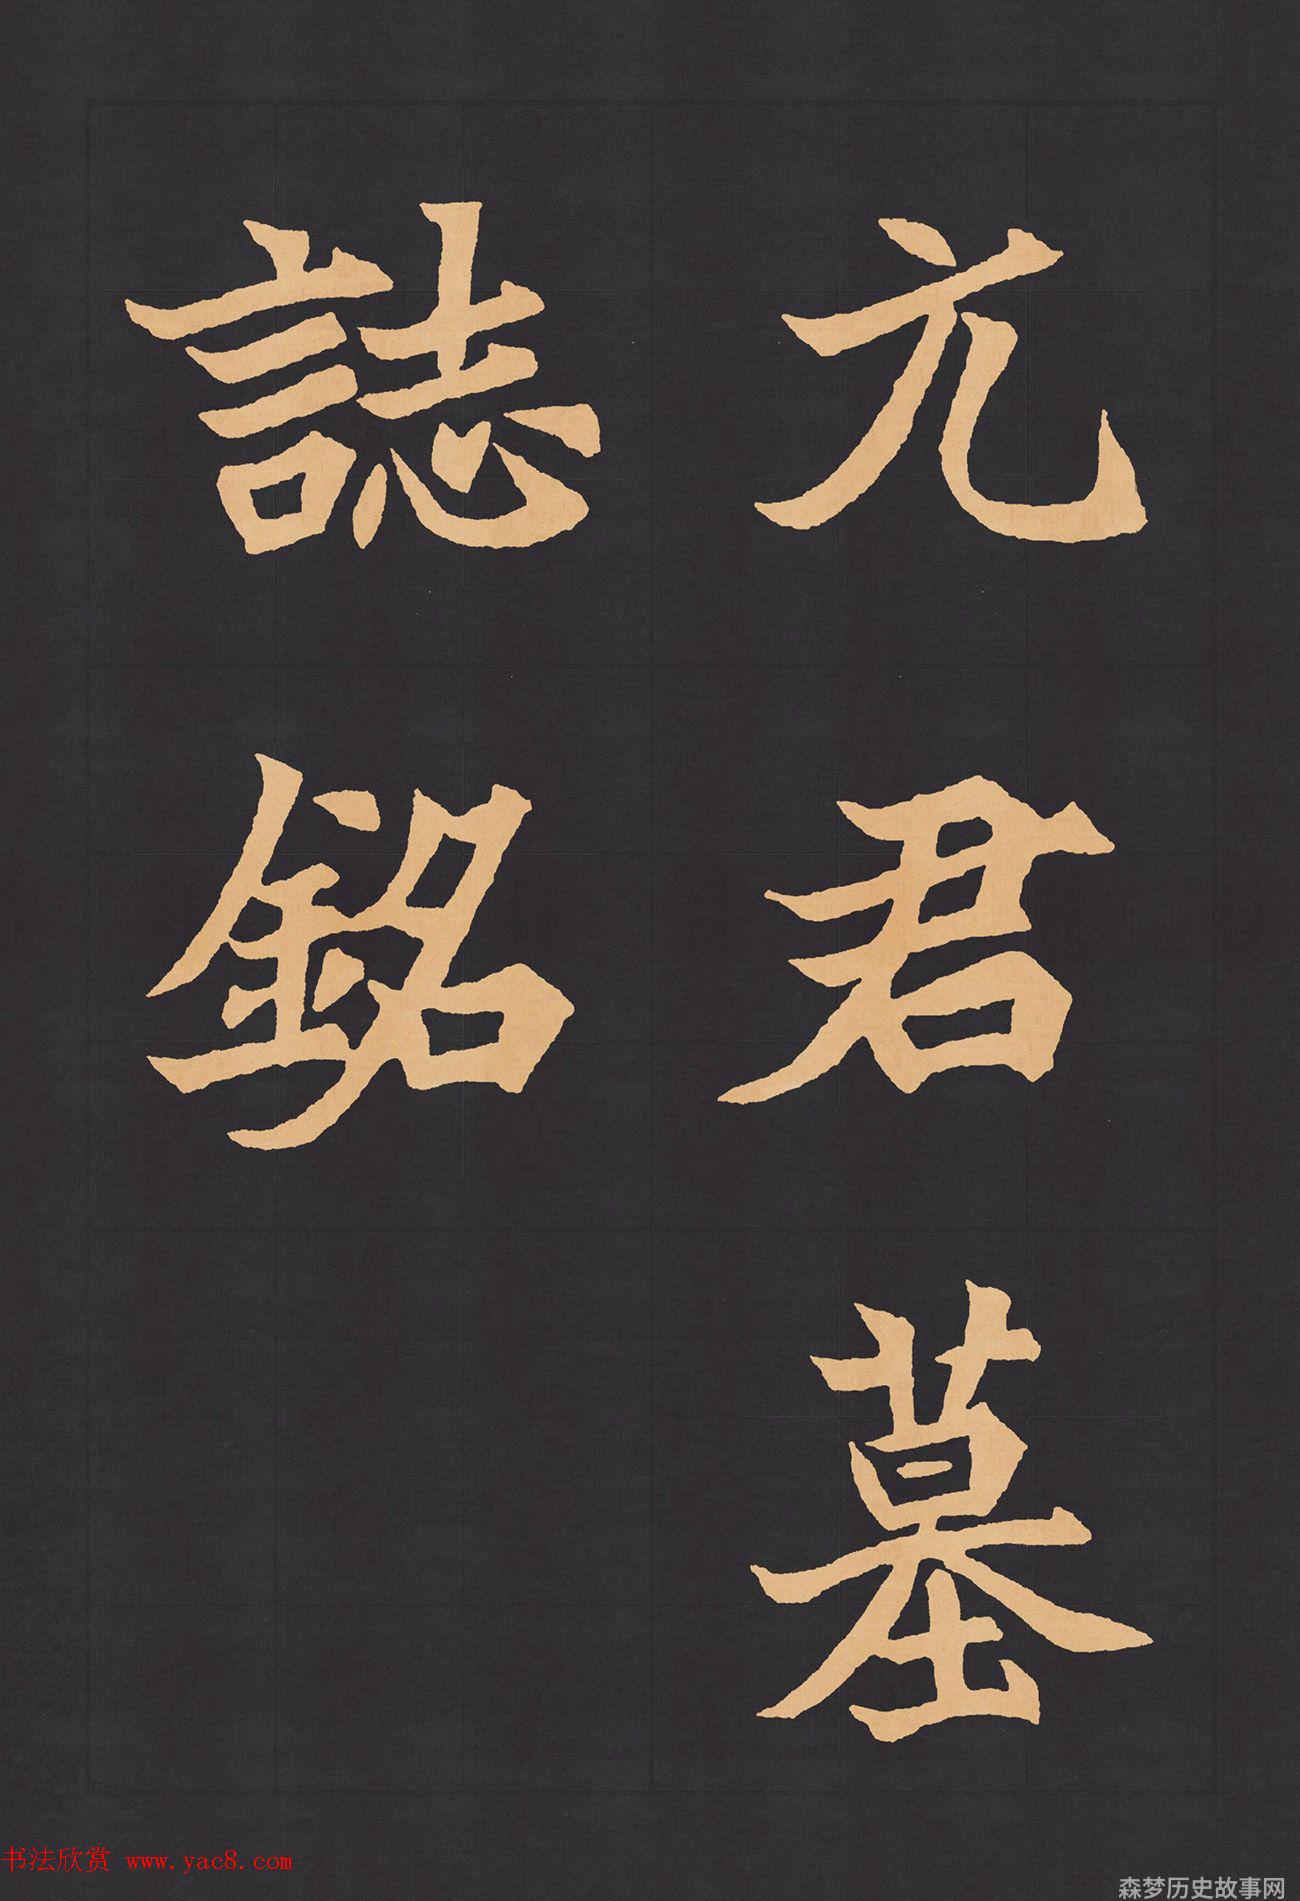 元君墓
誌銘
书法欣赏 www.yac8.com
森梦历史故事网